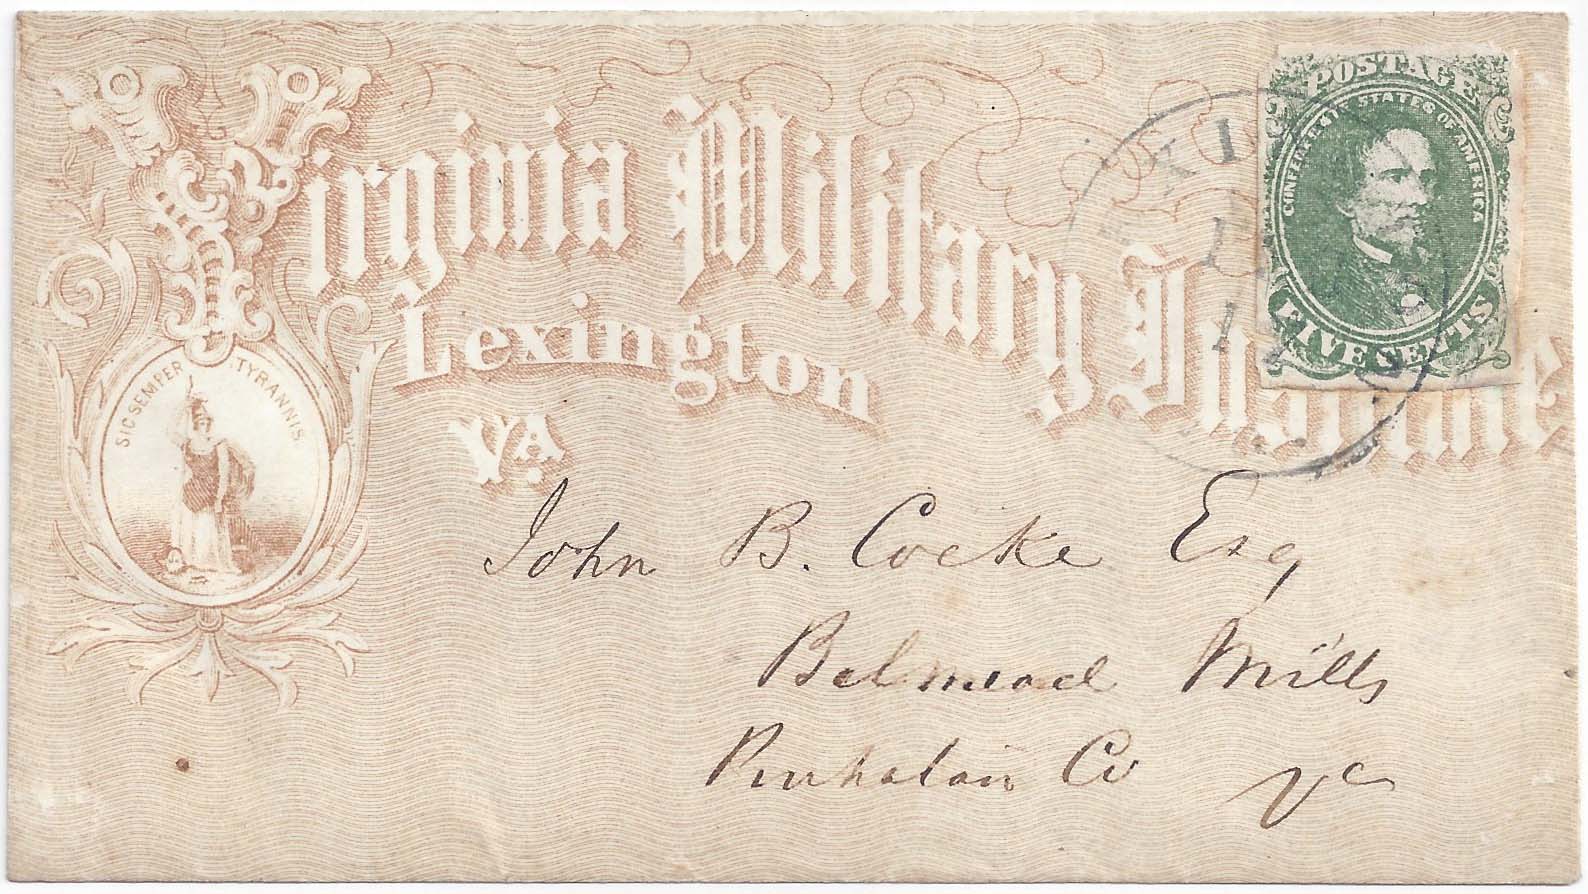 Virginia Military Institute
Lexington
VA.
SIC SEMPER TYRANNIS
POSTAGE
CONFEDERATE STATES OF AMERICA
FIVE CENTS
John B. Cocke Esq
Belmead Mills
Powhatan Co Va